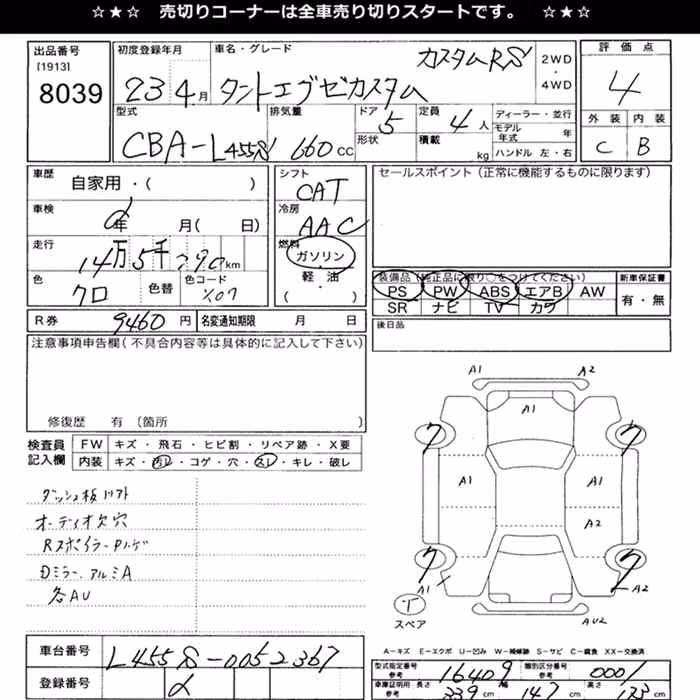 ☆★☆ 売切りコーナーは全車売り切りスタートです。 ☆★☆
出品番号 [1913] 8039
初度登録年月 23 4月
車名・グレード カスタムRS
タントエグゼカスタム
2WD ・ 4WD
評価点 4
外装 C 内装 B
型式 CBA-L455S
排気量 660 cc
ドア 5 形状
定員 4人 積載 kg
ディーラー・並行
モデル年式 年
ハンドル 左・右
車歴 自家用・( )
車検 年 月(日)
走行 14万5千290km
色 クロ 色替 色コード X07
シフト CAT
冷房 AAC
燃料 ガソリン 軽・油 ( )
セールスポイント(正常に機能するものに限ります)
装備品(純正品に限り○をつけてください)
PS PW ABS エアB AW
SR ナビ TV カワ
新車保証書 有・無
R券 9460円 名変通知期限 月 日
後日品
注意事項申告欄(不具合内容等は具体的に記入して下さい)
修復歴 有(箇所 )
検査員記入欄
FW キズ・飛石・ヒビ割・リペア跡・X要
内装 キズ・汚レ・コゲ・穴・スレ・キレ・破レ
ダッシュ板ハガト
オーディオ欠穴
Rスポイラー
Dミラー、アルミA
各AU
A1 A2
A1
7 7
A1 A1
A2
7 7
A1 X A2
AU2
T スペア
A−キズ E−エクボ U−凹み W−補修跡 S−サビ C−腐食 XX−交換済
車台番号 L455S-0052367
登録番号
型式指定番号 参考 16409 類別区分番号 参考 0001
車庫証明用 参考 長さ 339cm 幅 147cm 高さ cm